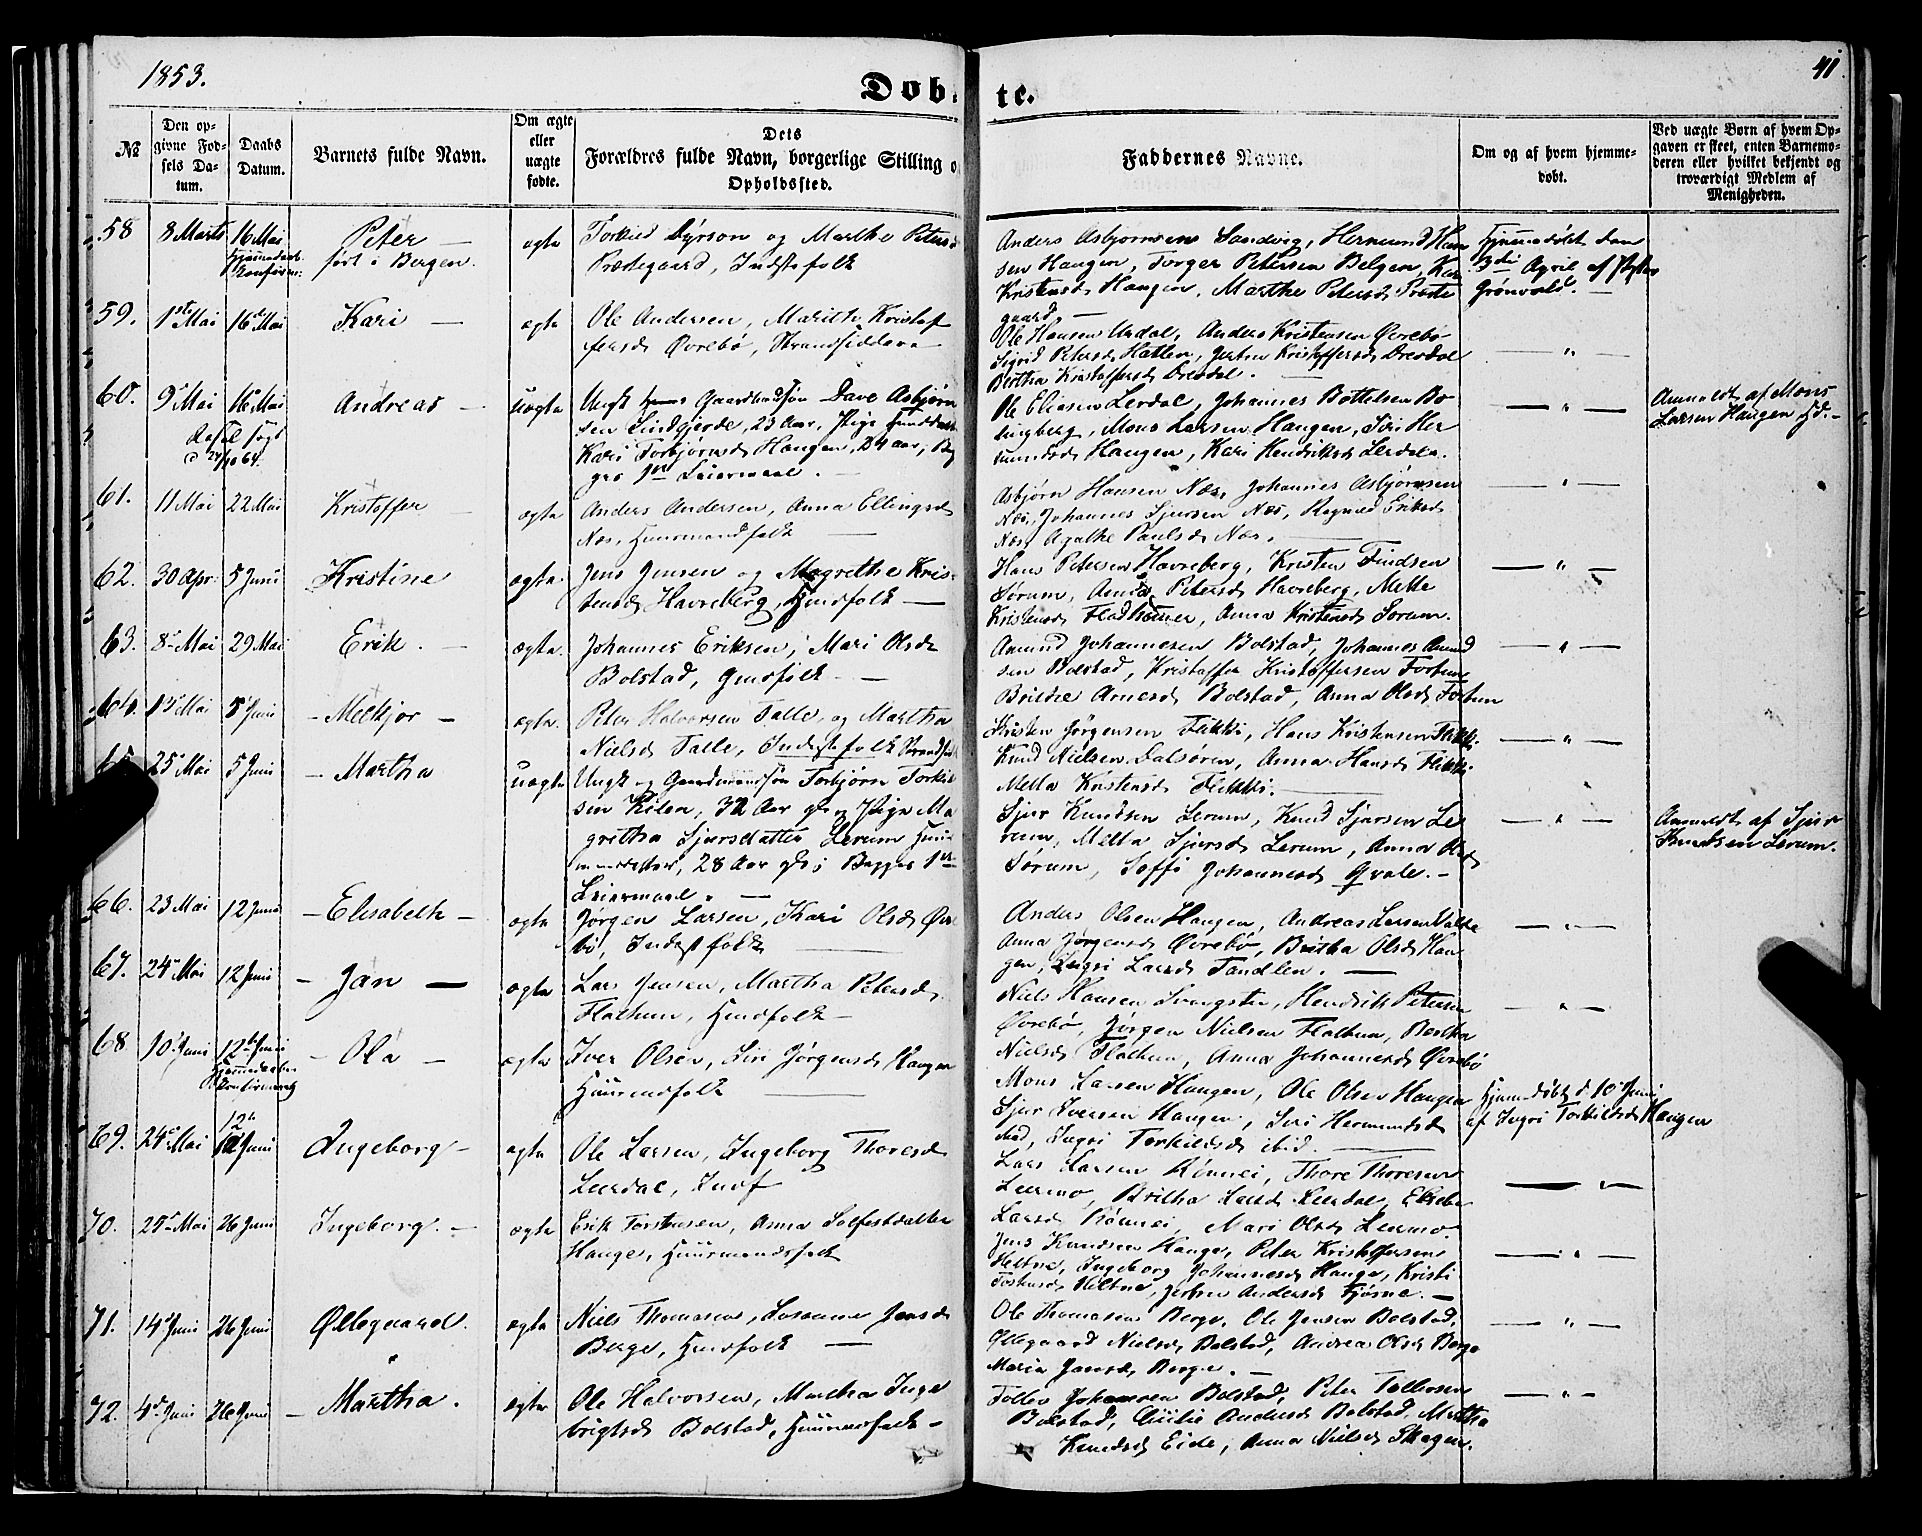 1853.
Døb-
te.
41
№
Den op-
givne Fød-
sels Da-
tum.
Daabs
Datum.
Barnets fulde Navn.
Om ægte
eller
uægte
fødte.
Dets
Forældres fulde Navn, borgerlige Stilling o
Opholdssted.
Faddernes Navne.
Om og af hvem hjemme-
døbt.
Ved uægte Børn af hvem Op-
gaven er skeet, enten Barnemo-
deren eller hvilket bekjendt og
troværdigt Medlem af
Menigheden.
58 8 Marts 16 Mai Peter — ægte
født i Bergen.
Torkild Dyrson og Marthe Peters
Præstegaard, Indstefolk
Anders Asbjørnsens Sandvig, Hermund Han
sen Haugen, Torger Petersen Belgen, Kari
Kristensd Haugen, Marthe Petersd Præste
gaard. —
Hjemmedøbt den
3die April af
Grønvold. —
59. 1ste Mai 16d Mai Kari — ægte
Ole Andersen, Marithe Kristof
fersd Øvrebø, Strandsiddere
Ole Hansen Urdal, Anders Kristensen Øvrebø
Sigrid Petersd Hatlen, Jertru Kristoffersd Dresdal
Bertha Kristoffersd Dresdal. —
— " —
60. 9d Mai 16d Mai Andreas — uægte
Ungk Gaardmandsøn Dave Asbjørn
sen Lindgjerde, 23 Aar, Pige
Kari Torbjørnsd Haugen, 24 Aar, Beg
ges 1ste Leiermaal.
Ole Eliasen Lerdal, Johannes Bottelsen Bo
lingberg, Mons Larsen Haugen, Siri Her
mundsd Haugen, Kari Hendriksd Lerdal.
— " —
Anmeldt af Mons
Larsen Haugen
61. 11 Mai 22 Mai Kristoffer — ægte
Anders Andersen, Anna Ellingsd
Næs, Huusmandsfolk —
Asbjørn Hansen Næs, Johannes Asbjørnsen
Næs, Johannes Sjursen Næs, Ragnild Eriksd
Næs, Agathe Paulsd Næs. —
— " —
62. 30 Apr: 5 Juni Kristine ægte.
Jens Jensen og Magrethe Kris-
tensd Havreberg, Huusfolk —
Hans Petersen Havreberg, Kristen Findsen
Sørum, Anna Petersd Havreberg, Mette
Kristensd Fladhamer, Anna Kristensd Sørum.
— " —
63. 8d Mai 29 Mai Erik. — ægte.
Johannes Eriksen, Mari Olsd
Bolstad, Gmdfolk —
Amund Johannesen Bolstad, Johannes Amund
sen Bolstad, Kristoffer Kristoffersen Fortun
Brithe Arnesd Bolstad, Anna Olsd Fortun
— " —
64. 13d Mai 5 Juni — Melkjor — ægte.
Peter Halvorsen Talle, og Martha
Nielsd Talle, Inderstefolk
Kristen Jørgensen Flikki, Hans Kristensen Flikki
Knud Nielsen Dalsøren, Anna Hansd Flikki
Mette Kristensd Flikki. —
— " —
25 Mai 5 Juni — Martha uægte
Ungk og Gaardmandsøn Torbjørn Torkil
sen Kilen, 32 Aar gl og Pige Ma
gretha Sjursdatter Lerum
28 Aar gl; Begges 1ste
Leiermaal. —
Sjur Knudsen Lerum, Knud Sjursen Le
rum, Metta Sjursd Lerum, Anna Olsd
Sørum, Soffi Johannesd Qvale. —
— " —
Anmeldt af Sjur
Knudsen Lerum.
66. 23 Mai 12 Juni — Elisabeth — ægte
Jørgen Larsen, Kari Olsd Øvre
bø, Inderstfolk —
Anders Olsen Haugen, Andreas Larsen
Anna Jørgensd Øvrebø, Britha Olsd Hau
gen, Ingri Larsd Tandlen. —
— " —
67. 24d Mai 12 Juni — Jan — ægte
Lars Jensen, Martha Petersd
Flahum, Huusfolk —
Niels Hansen Svangstu, Hendrik Petersen
Øvrebø, Jørgen Nielsen Flahum, Bertha
Nielsd Flahum, Anna Johannesd Øvrebø
— " —
68 10d Juni 12te Juni — Ola — ægte
Iver Olsen, Siri Jørgensd Haugen
Huusmandfolk —
Mons Larsen Haugen, Ole Olsen Haugen
Sjur Iversen Haugen, Siri Hermundsd
ibid, Ingri Torkildsd ibid. —
Hjemmedøbt d. 10de Juni
af Ingri Torkildsd Haugen
69. 24d Mai 12te Juni Ingeborg — ægte
Ole Larsen, Ingeborg Thoresd
Leerdal, Indf
Lars Larsen Rønnei, Thore Thoresen
Leermo, Britha Larsd Leerdal, Elsebe
Larsd Rønnei, Mari Olsd Leermo.
— " —
70. 25d Mai 26 Juni Ingeborg. — ægte
Erik Torstensen, Anna Solfestdatter
Hauge, Huusmandsfolk
Jens Knudsen Hauge, Peter Kristoffersen
Heltne, Ingeborg Johannesd Hauge, Kristi
Torstensd Heltne, Jertru Andersd Fjørne. —
— " —
71. 14d Juni 26 Juni Øllegaard. ægte
Niels Thomasen, Susanne Jensd
Berge, Huusfolk —
Ole Thomasen Berge, Ole Jensen Bolstad,
Øllegaard Nielsd Bolstad, Andrea Olsd Berge
Maria Jensd Berge. —
— " —
72. 4d Juni 26 Juni — Martha. ægte
Ole Halvorsen, Martha Inge
brigtsd Bolstad, Huusmandsfolk —
Tollev Johannesen Bolstad, Peter Tollevsen
Bolstad, Cicilie Andersd Bolstad, Martha
Knudsd Eide, Anna Nielsd Skagen.
— " —